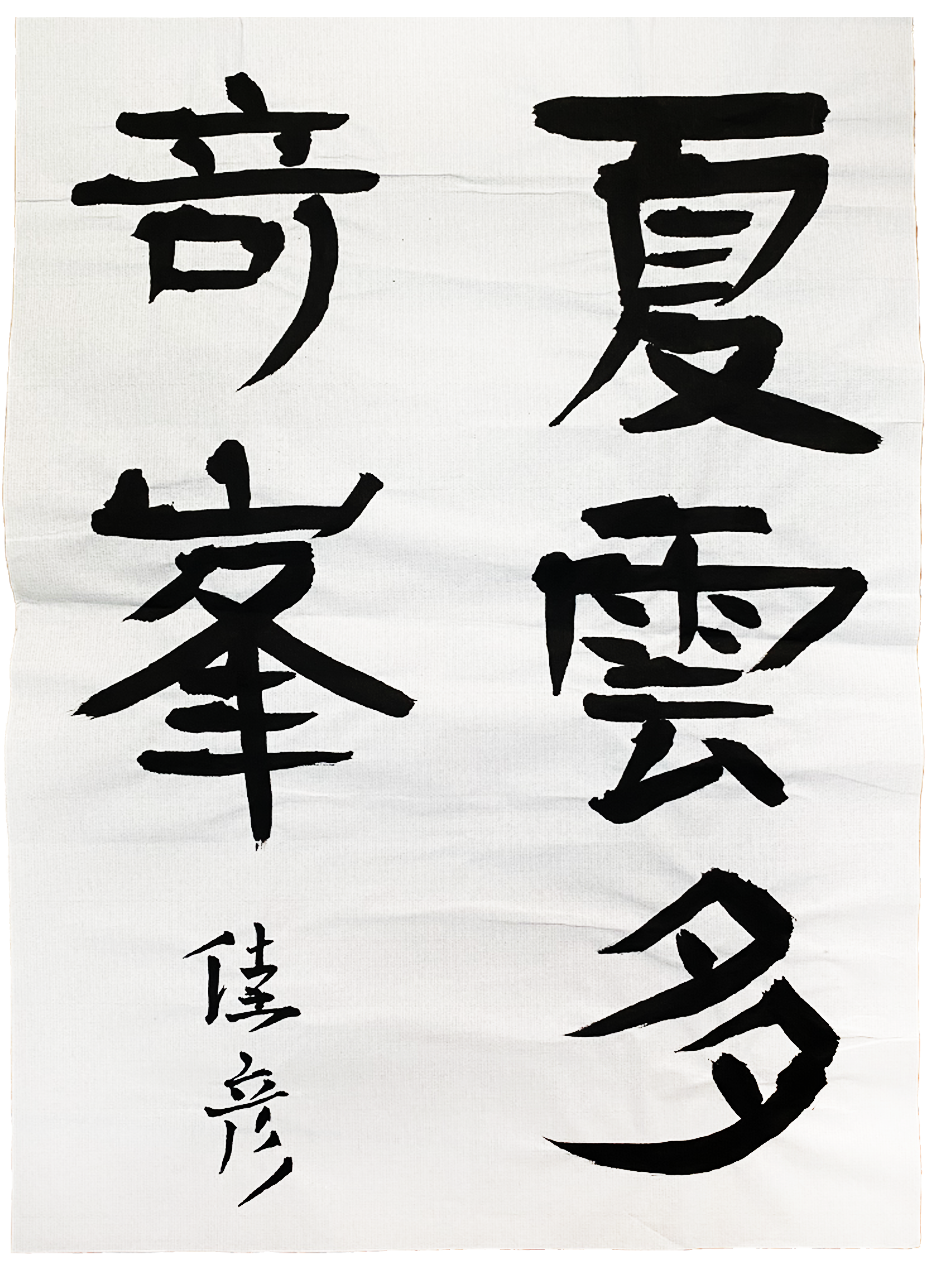 夏雲多
奇峯
佳彦